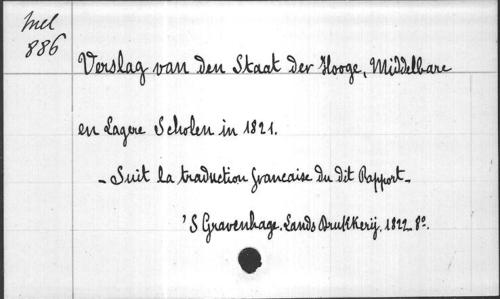 Mel
886
Verslag van den Staat der Hooge, Middelbare
en Lagere Scholen in 1821.
- Suit la traduction francaise du dit Rapport -
'S Gravenhage. Lands Drukkerij. 1822 - 8º.